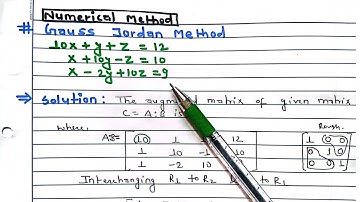 Numerical Method
# Gauss Jordan Method
10x + y + z = 12
x + 10y - z = 10
x - 2y + 10z = 9
→ Solution: The augmented matrix of given matrix
C = A:B is
where, Rough.
A:B = 10 1 12 1 0 0
1 10 -1 10 0 1 0
1 -2 10 0 0 1
Interchanging R1 to R2 to R1